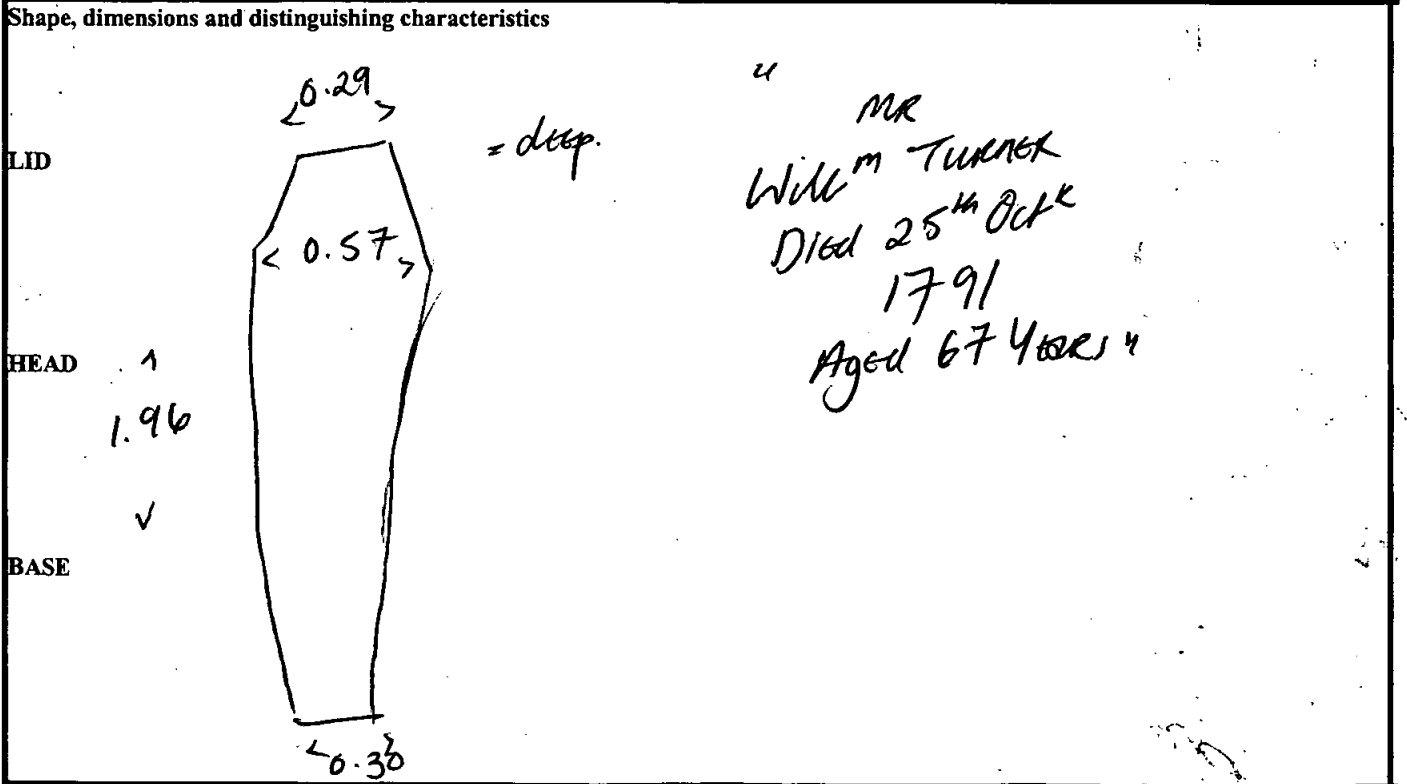 Shape, dimensions and distinguishing characteristics
0.29
= deep.
LID
< 0.57 >
HEAD
1.96
BASE
0.30
"
MR
Willm TURNER
Died 25th Octr
1791
Aged 67 Years "